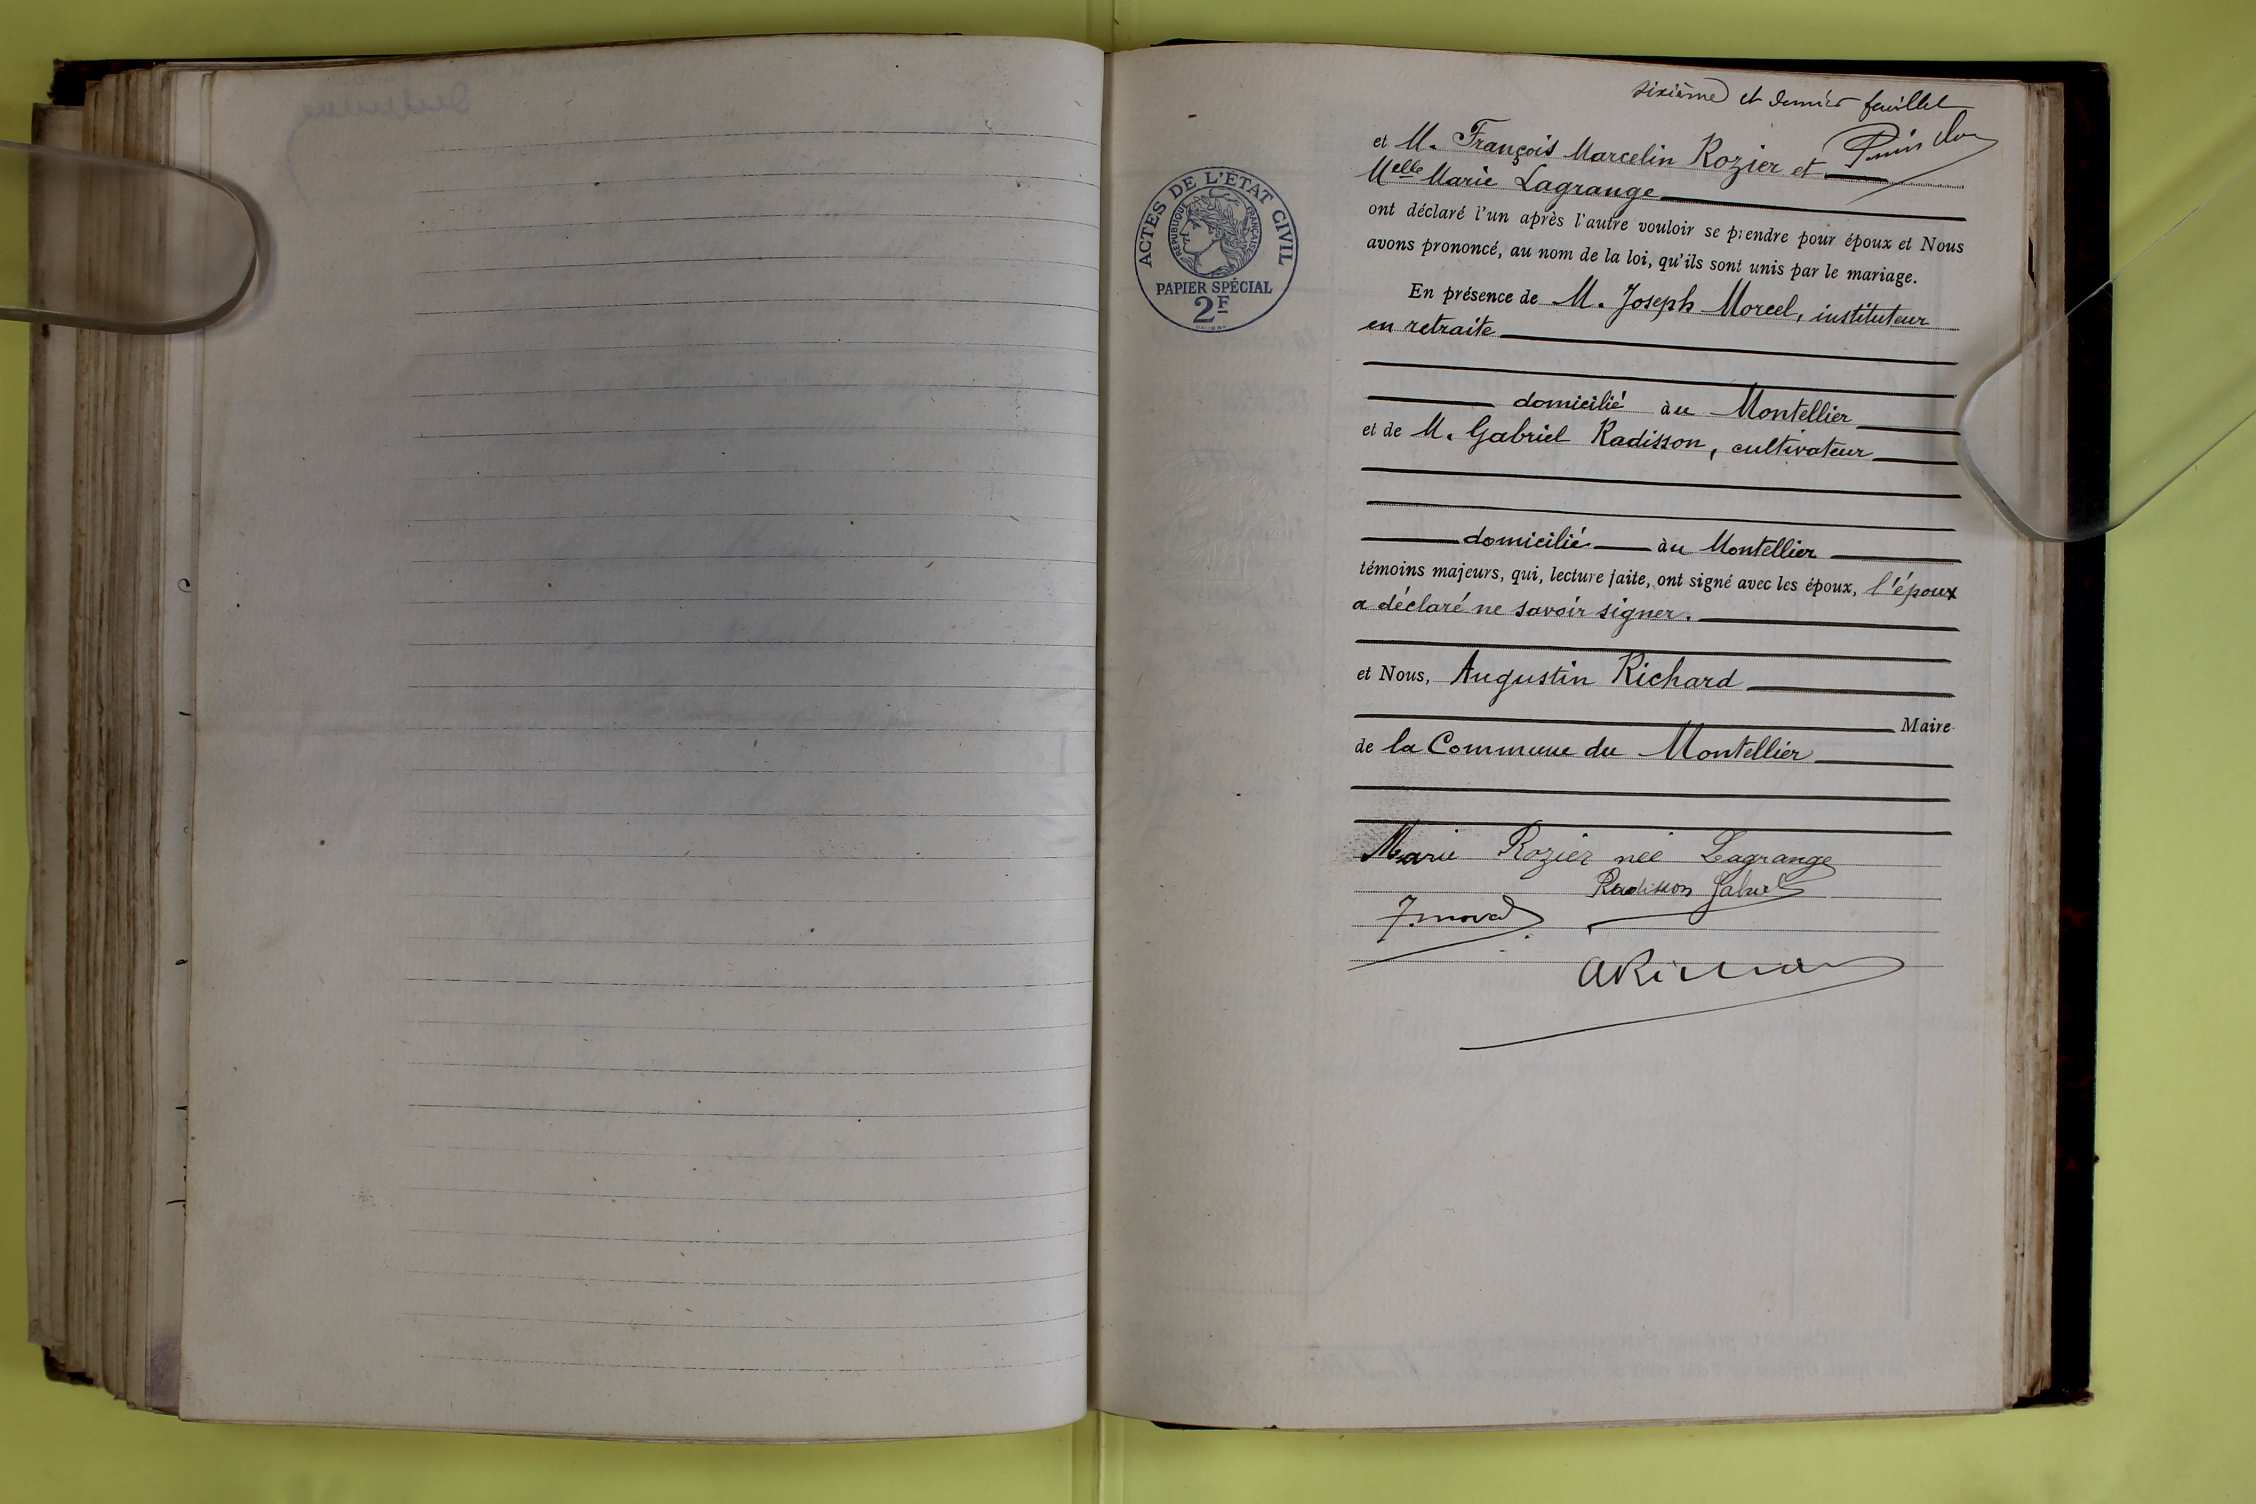 sixième et dernier feuillet
et M. François Marcelin Rozier et
Melle Marie Lagrange
ont déclaré l'un après l'autre vouloir se prendre pour époux et Nous
avons prononcé, au nom de la loi, qu'ils sont unis par le mariage.
ACTES DE L'ÉTAT CIVIL
RÉPUBLIQUE FRANÇAISE
PAPIER SPÉCIAL
2F
En présence de M. Joseph Morcel, instituteur
en retraite
domicilié au Montellier
et de M. Gabriel Radisson, cultivateur
domicilié au Montellier
témoins majeurs, qui, lecture faite, ont signé avec les époux, l'époux
a déclaré ne savoir signer.
et Nous, Augustin Richard
Maire
de la Commune du Montellier
Marie Rozier neé Lagrange
Radisson Gabriel
ARichard